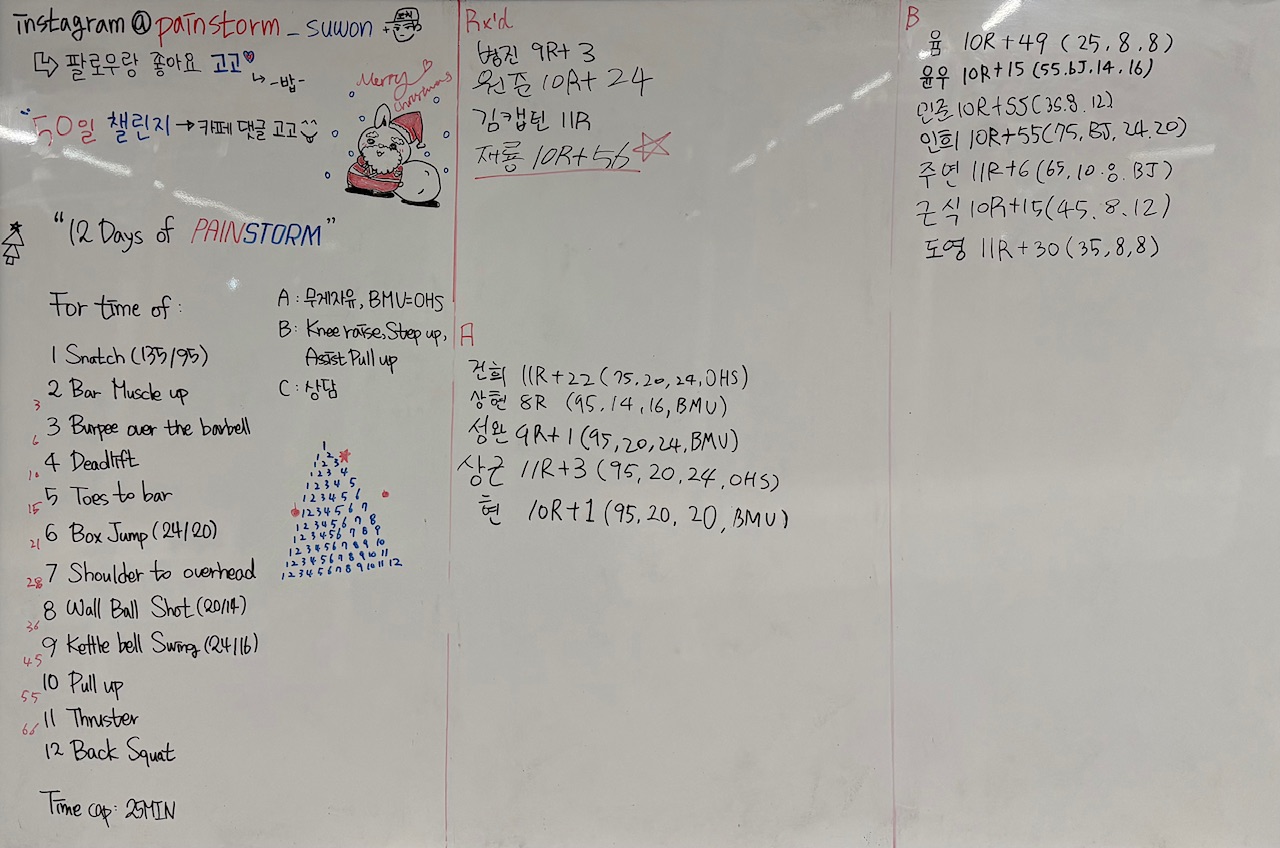 instagram @ painstorm _ suwon
팔로우랑 좋아요 고고
-밥-
Merry Christmas
50일 챌린지 → 카페 댓글 고고
"12 Days of PAINSTORM"
For time of :
1 Snatch (135/95)
2 Bar Muscle up
3
3 Burpee over the barbell
6
4 Deadlift
10
5 Toes to bar
15
6 Box Jump (24/20)
21
7 Shoulder to overhead
28
8 Wall Ball Shot (20/14)
36
9 Kettle bell Swing (24/16)
45
10 Pull up
55
11 Thruster
66
12 Back Squat
Time cap : 25MIN
A : 무게자유, BMU=OHS
B : Knee raise, Step up,
Assist Pull up
C : 상담
1
1 2
1 2 3
1 2 3 4
1 2 3 4 5
1 2 3 4 5 6
1 2 3 4 5 6 7
1 2 3 4 5 6 7 8
1 2 3 4 5 6 7 8 9
1 2 3 4 5 6 7 8 9 10
1 2 3 4 5 6 7 8 9 10 11
1 2 3 4 5 6 7 8 9 10 11 12
Rx'd
병진 9R+ 3
원준 10R+ 24
김캡틴 11R
재룡 10R+56
A
건희 11R+22 (75, 20, 24, OHS)
상현 8R (95, 14, 16, BMU)
성완 9R+1 (95, 20, 24, BMU)
상근 11R+3 (95, 20, 24, OHS)
현 10R+1 (95, 20, 20, BMU)
B
윰 10R+49 (25, 8, 8)
윤우 10R+15 (55, BJ, 14, 16)
민준 10R+55 (35, 8, 12)
인희 10R+55 (75, BJ, 24, 20)
주연 11R+6 (65, 10, 8, BJ)
근식 10R+15 (45, 8, 12)
도영 11R+30 (35, 8, 8)